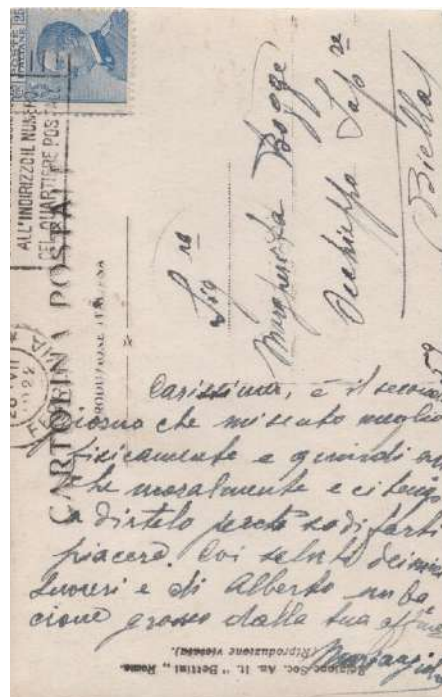 POSTE ITALIANE
ALL'INDIRIZZO IL NUMERO
DEL QUARTIERE POSTALE
CARTOLINA POSTALE
Sig ra
Margherita
Vecchio
Biella
Carissima, è il secondo
giorno che mi sento meglio
fisicamente e quindi an
che moralmente e ci tengo
a dirtelo perchè so di farti
piacere. Coi saluti dei miei
suoceri e di Alberto un ba
cione grosso dalla tua
(Riproduzione vietata).
Edizione Soc. An. It. "Bettini„ Roma